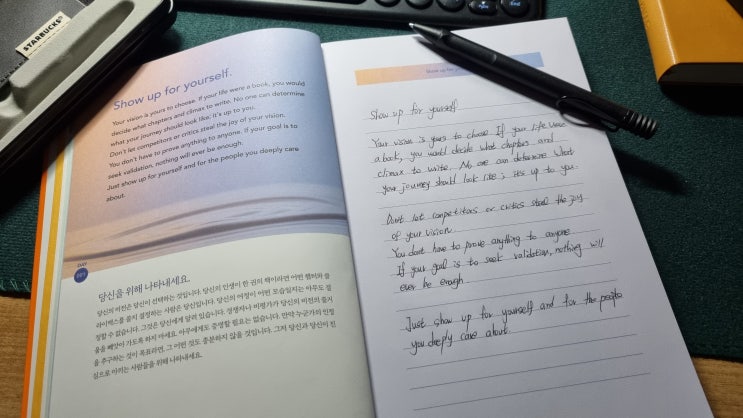 STARBUCKS
Show up for yourself.
Your vision is yours to choose. If your life were a book, you would
decide what chapters and climax to write. No one can determine
what your journey should look like; it's up to you.
Don't let competitors or critics steal the joy of your vision.
You don't have to prove anything to anyone. If your goal is to
seek validation, nothing will ever be enough.
Just show up for yourself and for the people you deeply care
about.
DAY
당신을 위해 나타내세요.
당신의 비전은 당신이 선택하는 것입니다. 당신의 인생이 한 권의 책이라면 어떤 챕터와 클
라이맥스를 쓸지 결정하는 사람은 당신입니다. 당신의 여정이 어떤 모습일지는 아무도 결
정할 수 없습니다. 그것은 당신에게 달려 있습니다. 경쟁자나 비평가가 당신의 비전의 즐거
움을 빼앗아 가도록 하지 마세요. 아무에게도 증명할 필요는 없습니다. 만약 누군가의 인정
을 추구하는 것이 목표라면, 그 어떤 것도 충분하지 않을 것입니다. 그저 당신과 당신이 진
심으로 아끼는 사람들을 위해 나타내세요.
Show up for
Show up for yourself
Your vision is yours to choose. If your life were
a book, you would decide what chapters and
climax to write. No one can determine what
your journey should look like ; it's up to you.
Don't let competitors or critics steal the joy
of your vision.
You don't have to prove anything to anyone.
If your goal is to seek validation, nothing will
ever be enough.
Just show up for yourself and for the people
you deeply care about.